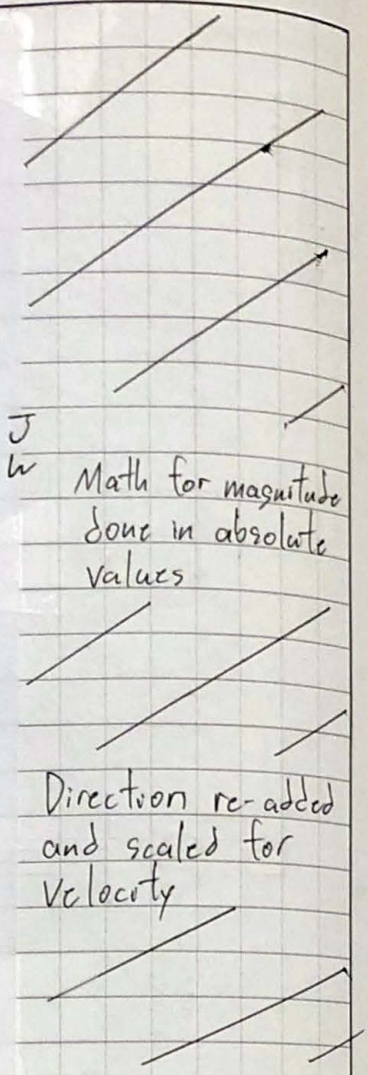 J
W
Math for magnitude
done in absolute
values
Direction re-added
and scaled for
Velocity